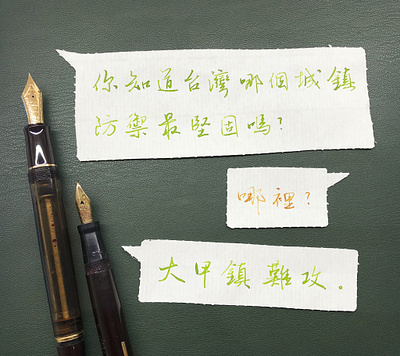 你知道台灣哪個城鎮
防禦最堅固嗎?
哪裡?
大甲鎮難攻。